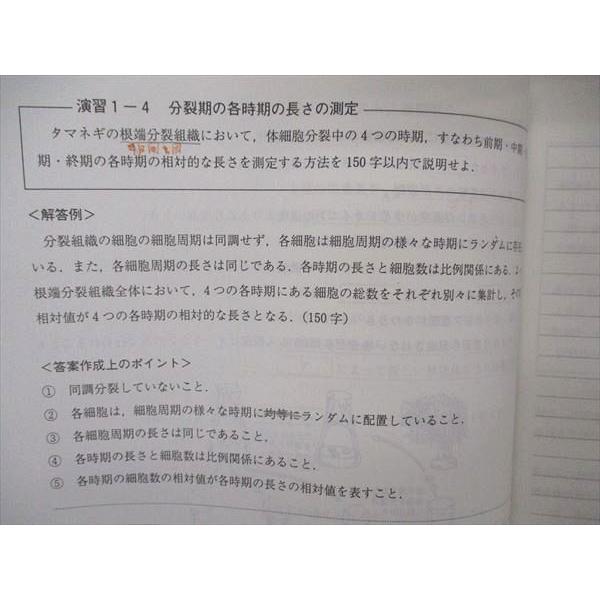 演習1－4 分裂期の各時期の長さの測定
タマネギの根端分裂組織において，体細胞分裂中の4つの時期，すなわち前期・中期・
期・終期の各時期の相対的な長さを測定する方法を150字以内で説明せよ．
＜解答例＞
分裂組織の細胞の細胞周期は同調せず，各細胞は細胞周期の様々な時期にランダムに存在
いる．また，各細胞周期の長さは同じである．各時期の長さと細胞数は比例関係にある．よ
根端分裂組織全体において，4つの各時期にある細胞の総数をそれぞれ別々に集計し，その
相対値が4つの各時期の相対的な長さとなる．(150字)
＜答案作成上のポイント＞
① 同調分裂していないこと．
② 各細胞は，細胞周期の様々な時期に均等にランダムに配置していること．
③ 各細胞周期の長さは同じであること．
④ 各時期の長さと細胞数は比例関係にあること．
⑤ 各時期の細胞数の相対値が各時期の長さの相対値を表すこと．